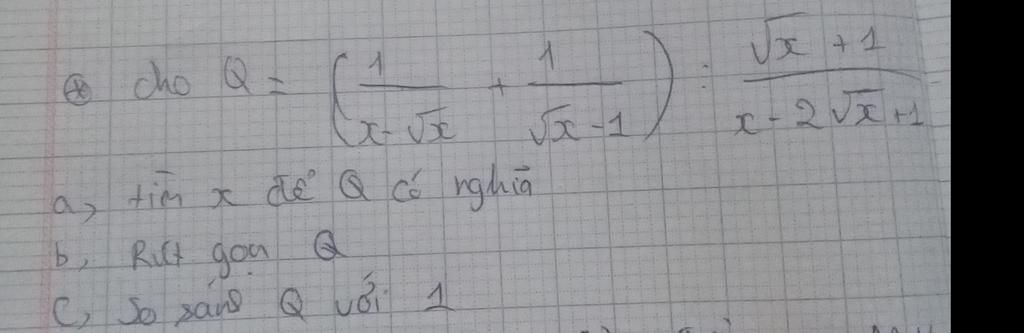 ⊛ cho Q = (1/(x-√x) + 1/(√x-1)) : (√x+1)/(x-2√x+1)
a, tìm x để Q có nghĩa
b, Rút gọn Q
c, So sánh Q với 1